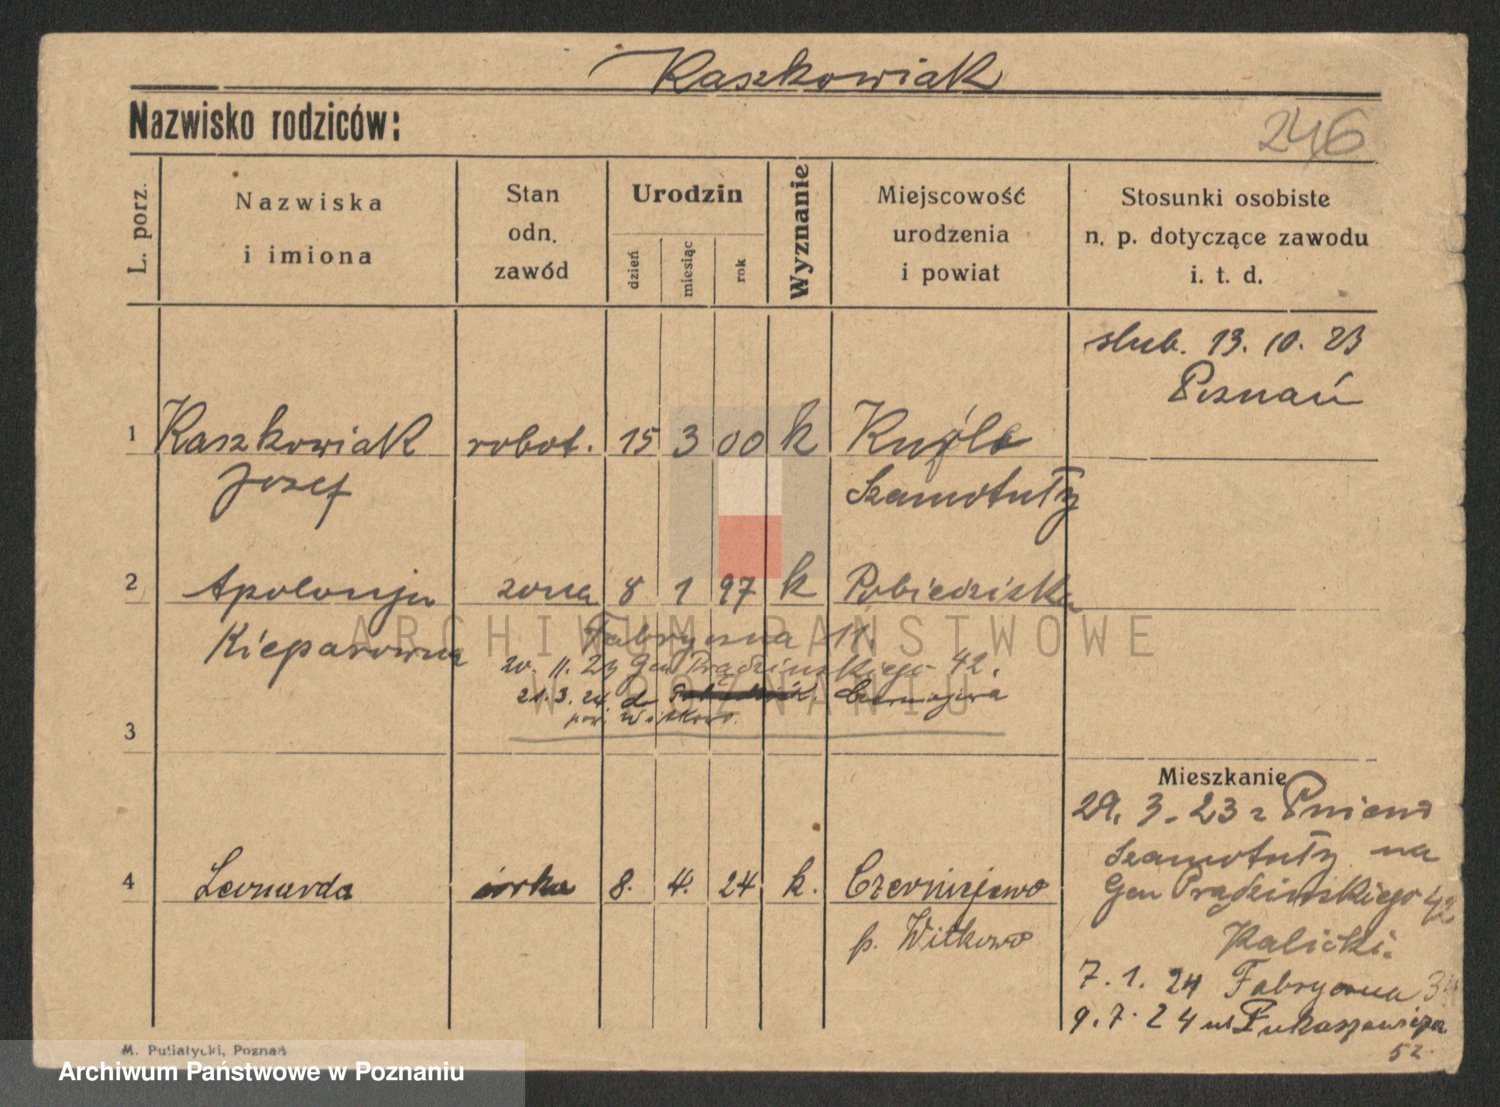 Kaszkowiak
Nazwisko rodziców:
246
L. porz.
Nazwiska
i imiona
Stan
odn.
zawód
Urodzin
dzień
miesiąc
rok
Wyznanie
Miejscowość
urodzenia
i powiat
Stosunki osobiste
n. p. dotyczące zawodu
i. t. d.
slub. 13. 10. 23
Poznań
1 Kaszkowiak robot. 15 3 00 k
Jozef Szamotuły
2 Apolonja zona 8 1 97 k Pobiedziska
Kieparowna Fabryczna 11
20. 11. 23 Gen Prądzinskiego 42.
21. 3. 24 do Czerniejewa
pow. Witkowo.
3
Mieszkanie
29. 3. 23 z Pniew
Szamotuły na
Gen Prądzinskiego 42
Kalicki.
4 Leonarda córka 8. 4. 24 k. Czerniejewo
p. Witkowo
7. 1. 24 Fabryczna
9. 7. 24 ul Łukaszewicza
52.
ARCHIWUM PAŃSTWOWE
W POZNANIU
M. Putiatycki, Poznań
Archiwum Państwowe w Poznaniu